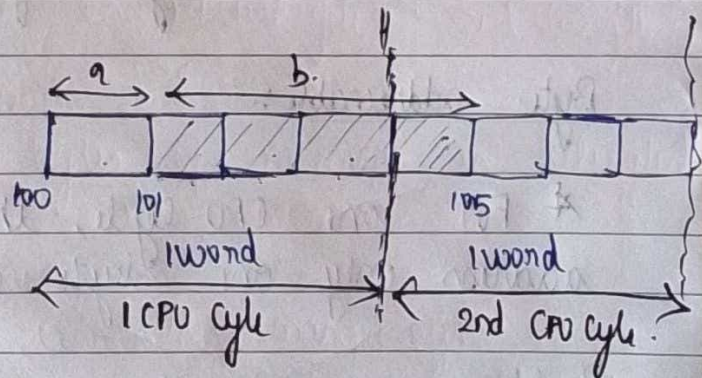 a b.
100 101 105
1word 1word
1 CPU Cyle 2nd CPU Cyle.